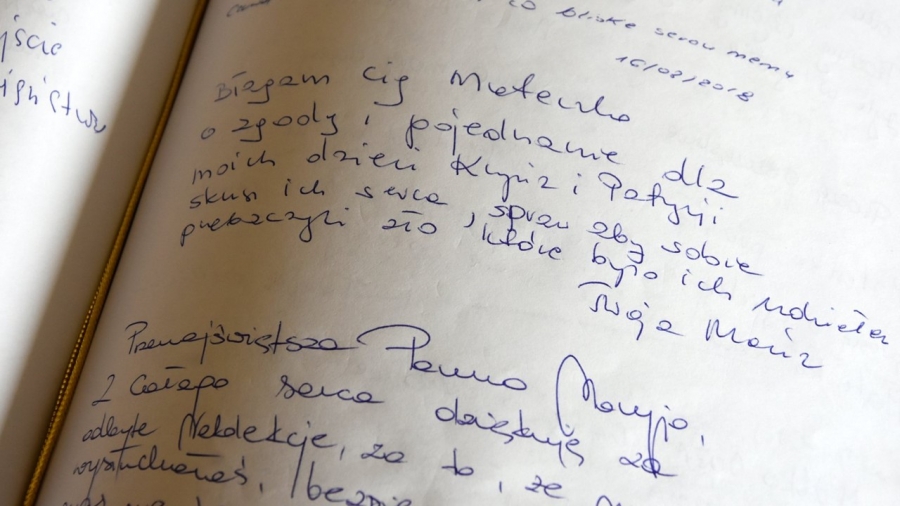 jście
bliskie sercu memu
16/02/2018
Błagam Cię Mateńko
o zgodę i pojednanie dla
moich dzieci i Patrycji
skrusz ich serca, spraw aby sobie
przebaczyli zło, które było ich udziałem
Twoja Maria
Przenajświętsza Panno Maryjo,
Z całego serca dziękuję za
odbyte, za to, że
wysłuchałaś,